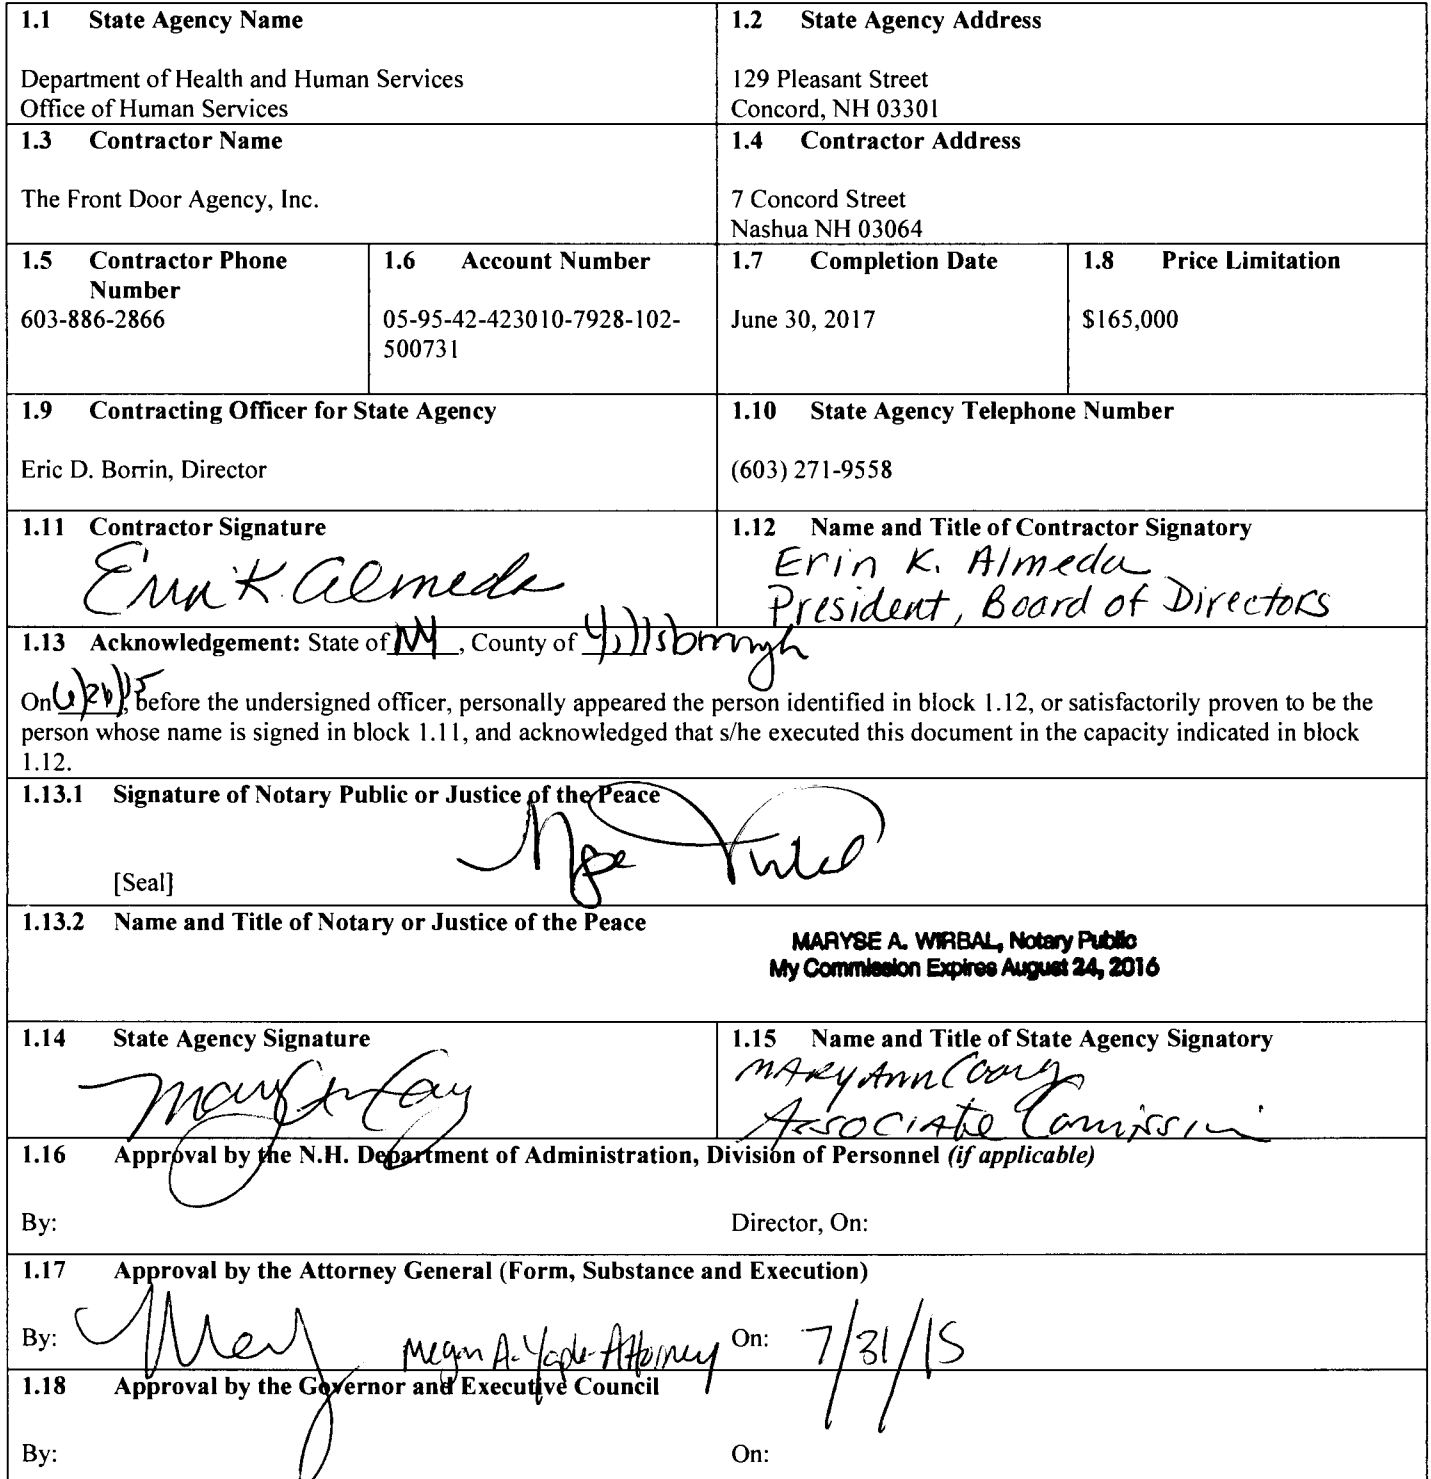 1.1 State Agency Name
1.2 State Agency Address
Department of Health and Human Services
Office of Human Services
129 Pleasant Street
Concord, NH 03301
1.3 Contractor Name
1.4 Contractor Address
The Front Door Agency, Inc.
7 Concord Street
Nashua NH 03064
1.5 Contractor Phone
Number
603-886-2866
1.6 Account Number
05-95-42-423010-7928-102-
500731
1.7 Completion Date
June 30, 2017
1.8 Price Limitation
$165,000
1.9 Contracting Officer for State Agency
Eric D. Borrin, Director
1.10 State Agency Telephone Number
(603) 271-9558
1.11 Contractor Signature
Erin K. Almeda
1.12 Name and Title of Contractor Signatory
Erin K. Almeda
President, Board of Directors
1.13 Acknowledgement: State of NH, County of Hillsborough
On 6/26/15, before the undersigned officer, personally appeared the person identified in block 1.12, or satisfactorily proven to be the
person whose name is signed in block 1.11, and acknowledged that s/he executed this document in the capacity indicated in block
1.12.
1.13.1 Signature of Notary Public or Justice of the Peace
[Seal]
1.13.2 Name and Title of Notary or Justice of the Peace
MARYSE A. WIRBAL, Notary Public
My Commission Expires August 24, 2016
1.14 State Agency Signature
1.15 Name and Title of State Agency Signatory
Mary Ann Cooney
Associate
1.16 Approval by the N.H. Department of Administration, Division of Personnel (if applicable)
By:
Director, On:
1.17 Approval by the Attorney General (Form, Substance and Execution)
By: Megan A. Yaple-Attorney On: 7/31/15
1.18 Approval by the Governor and Executive Council
By:
On: